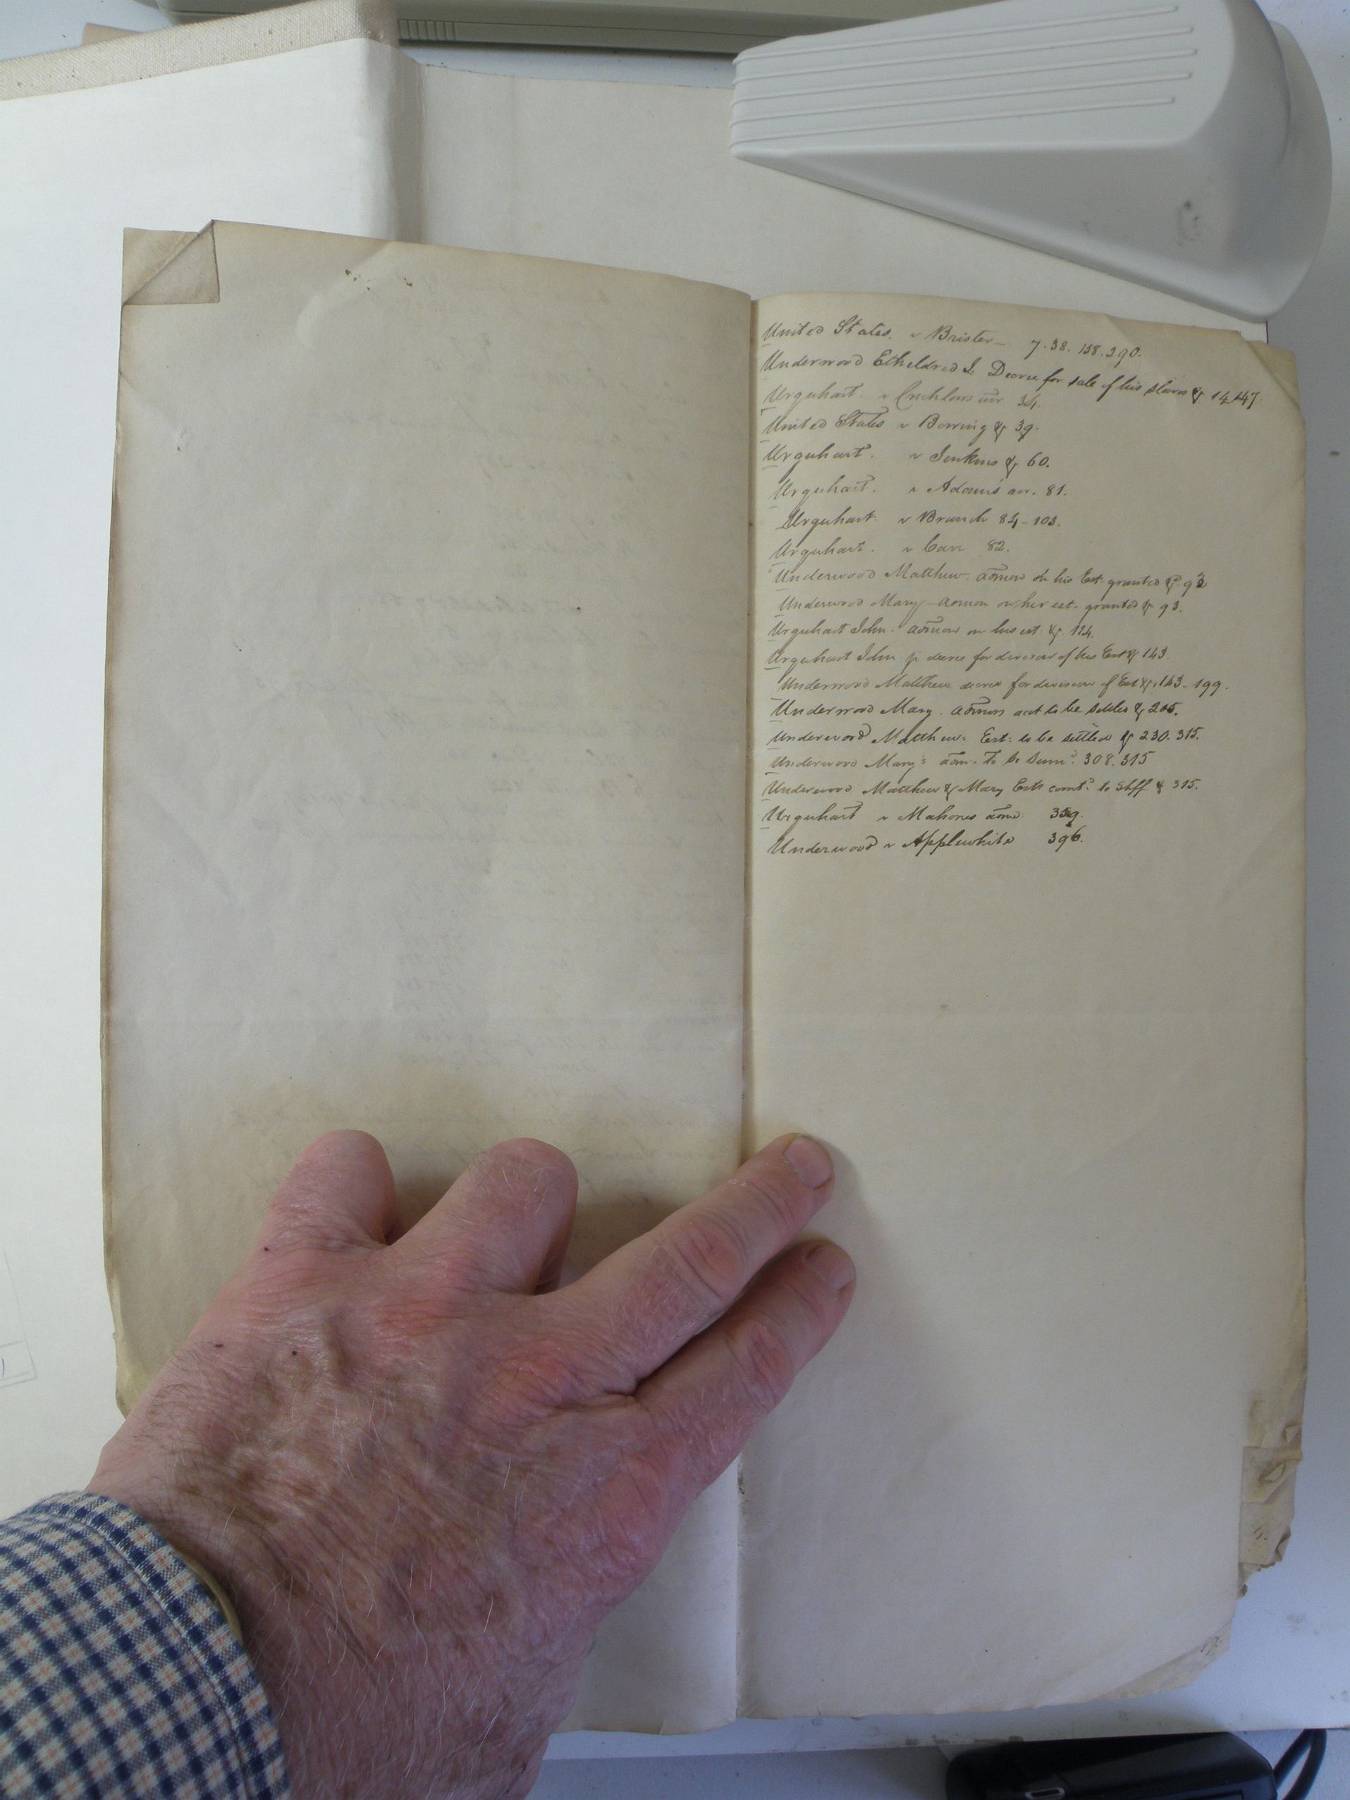 United States. v Brister 7. 38. 158. 390.
Underwood Etheldred J. Decree for sale of his slaves & 14.147.
Urquhart. v 34.
United States v Bowing & 39.
Urquhart. v Jenkins & 60.
Urquhart. v Adams' 81.
Urquhart. v Branch 84-103.
Urquhart. v Carr 82.
Underwood Matthew. admon on his Est. granted & 93
Underwood Mary admon on her est. granted & 93.
Urquhart John. admon on his est & 114.
Urquhart John decree for division of his Est & 143.
Underwood Matthew decree for division of Est &c. 143-199.
Underwood Mary. admors act to be settled &
Underwood Matthew. Est: to be settled & 230. 315.
Underwood Mary's adm. To be Sumd. 308. 315
Underwood Matthew & Mary Ests comtd. to Shff & 315.
Urquhart v Mahones adms
Underwood v Applewhite 396.